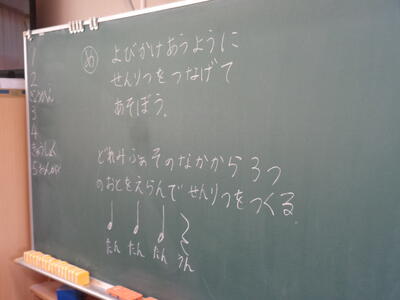 1
2
3
4
きゅうしょく
5
め
よびかけあうように
せんりつをつなげて
あそぼう。
どれみふぁそのなかから3つ
のおとをえらんでせんりつをつくる
たん たん たん うん